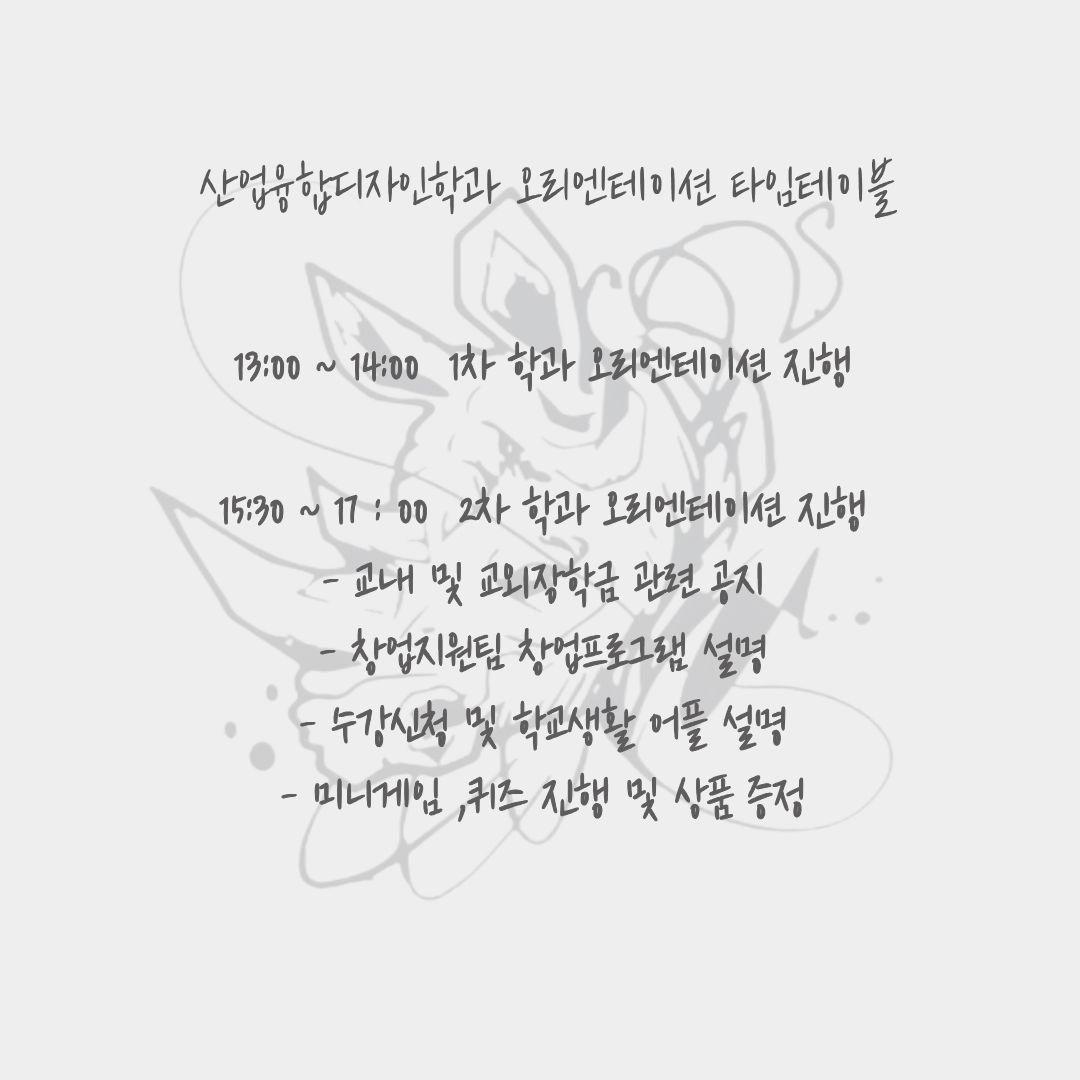 산업융합디자인학과 오리엔테이션 타임테이블
13:00 ~ 14:00 1차 학과 오리엔테이션 진행
15:30 ~ 17 : 00 2차 학과 오리엔테이션 진행
- 교내 및 교외장학금 관련 공지
- 창업지원팀 창업프로그램 설명
- 수강신청 및 학교생활 어플 설명
- 미니게임 ,퀴즈 진행 및 상품 증정